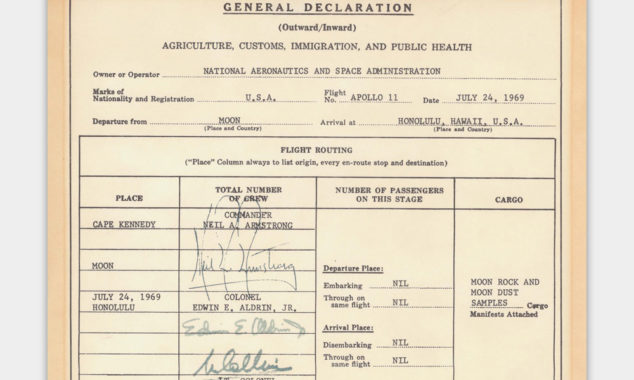 GENERAL DECLARATION
(Outward/Inward)
AGRICULTURE, CUSTOMS, IMMIGRATION, AND PUBLIC HEALTH
Owner or Operator NATIONAL AERONAUTICS AND SPACE ADMINISTRATION
Marks of
Nationality and Registration U.S.A. Flight No. APOLLO 11 Date JULY 24, 1969
Departure from MOON Arrival at HONOLULU, HAWAII, U.S.A.
(Place and Country) (Place and Country)
FLIGHT ROUTING
("Place" Column always to list origin, every en-route stop and destination)
PLACE
TOTAL NUMBER
OF CREW
NUMBER OF PASSENGERS
ON THIS STAGE
CARGO
CAPE KENNEDY
MOON
JULY 24, 1969
HONOLULU
COMMANDER
NEIL A. ARMSTRONG
Neil A. Armstrong
COLONEL
EDWIN E. ALDRIN, JR.
Edwin E. Aldrin Jr
M Collins
Departure Place:
Embarking NIL
Through on
same flight NIL
Arrival Place:
Disembarking NIL
Through on
same flight NIL
MOON ROCK AND
MOON DUST
SAMPLES Cargo
Manifests Attached